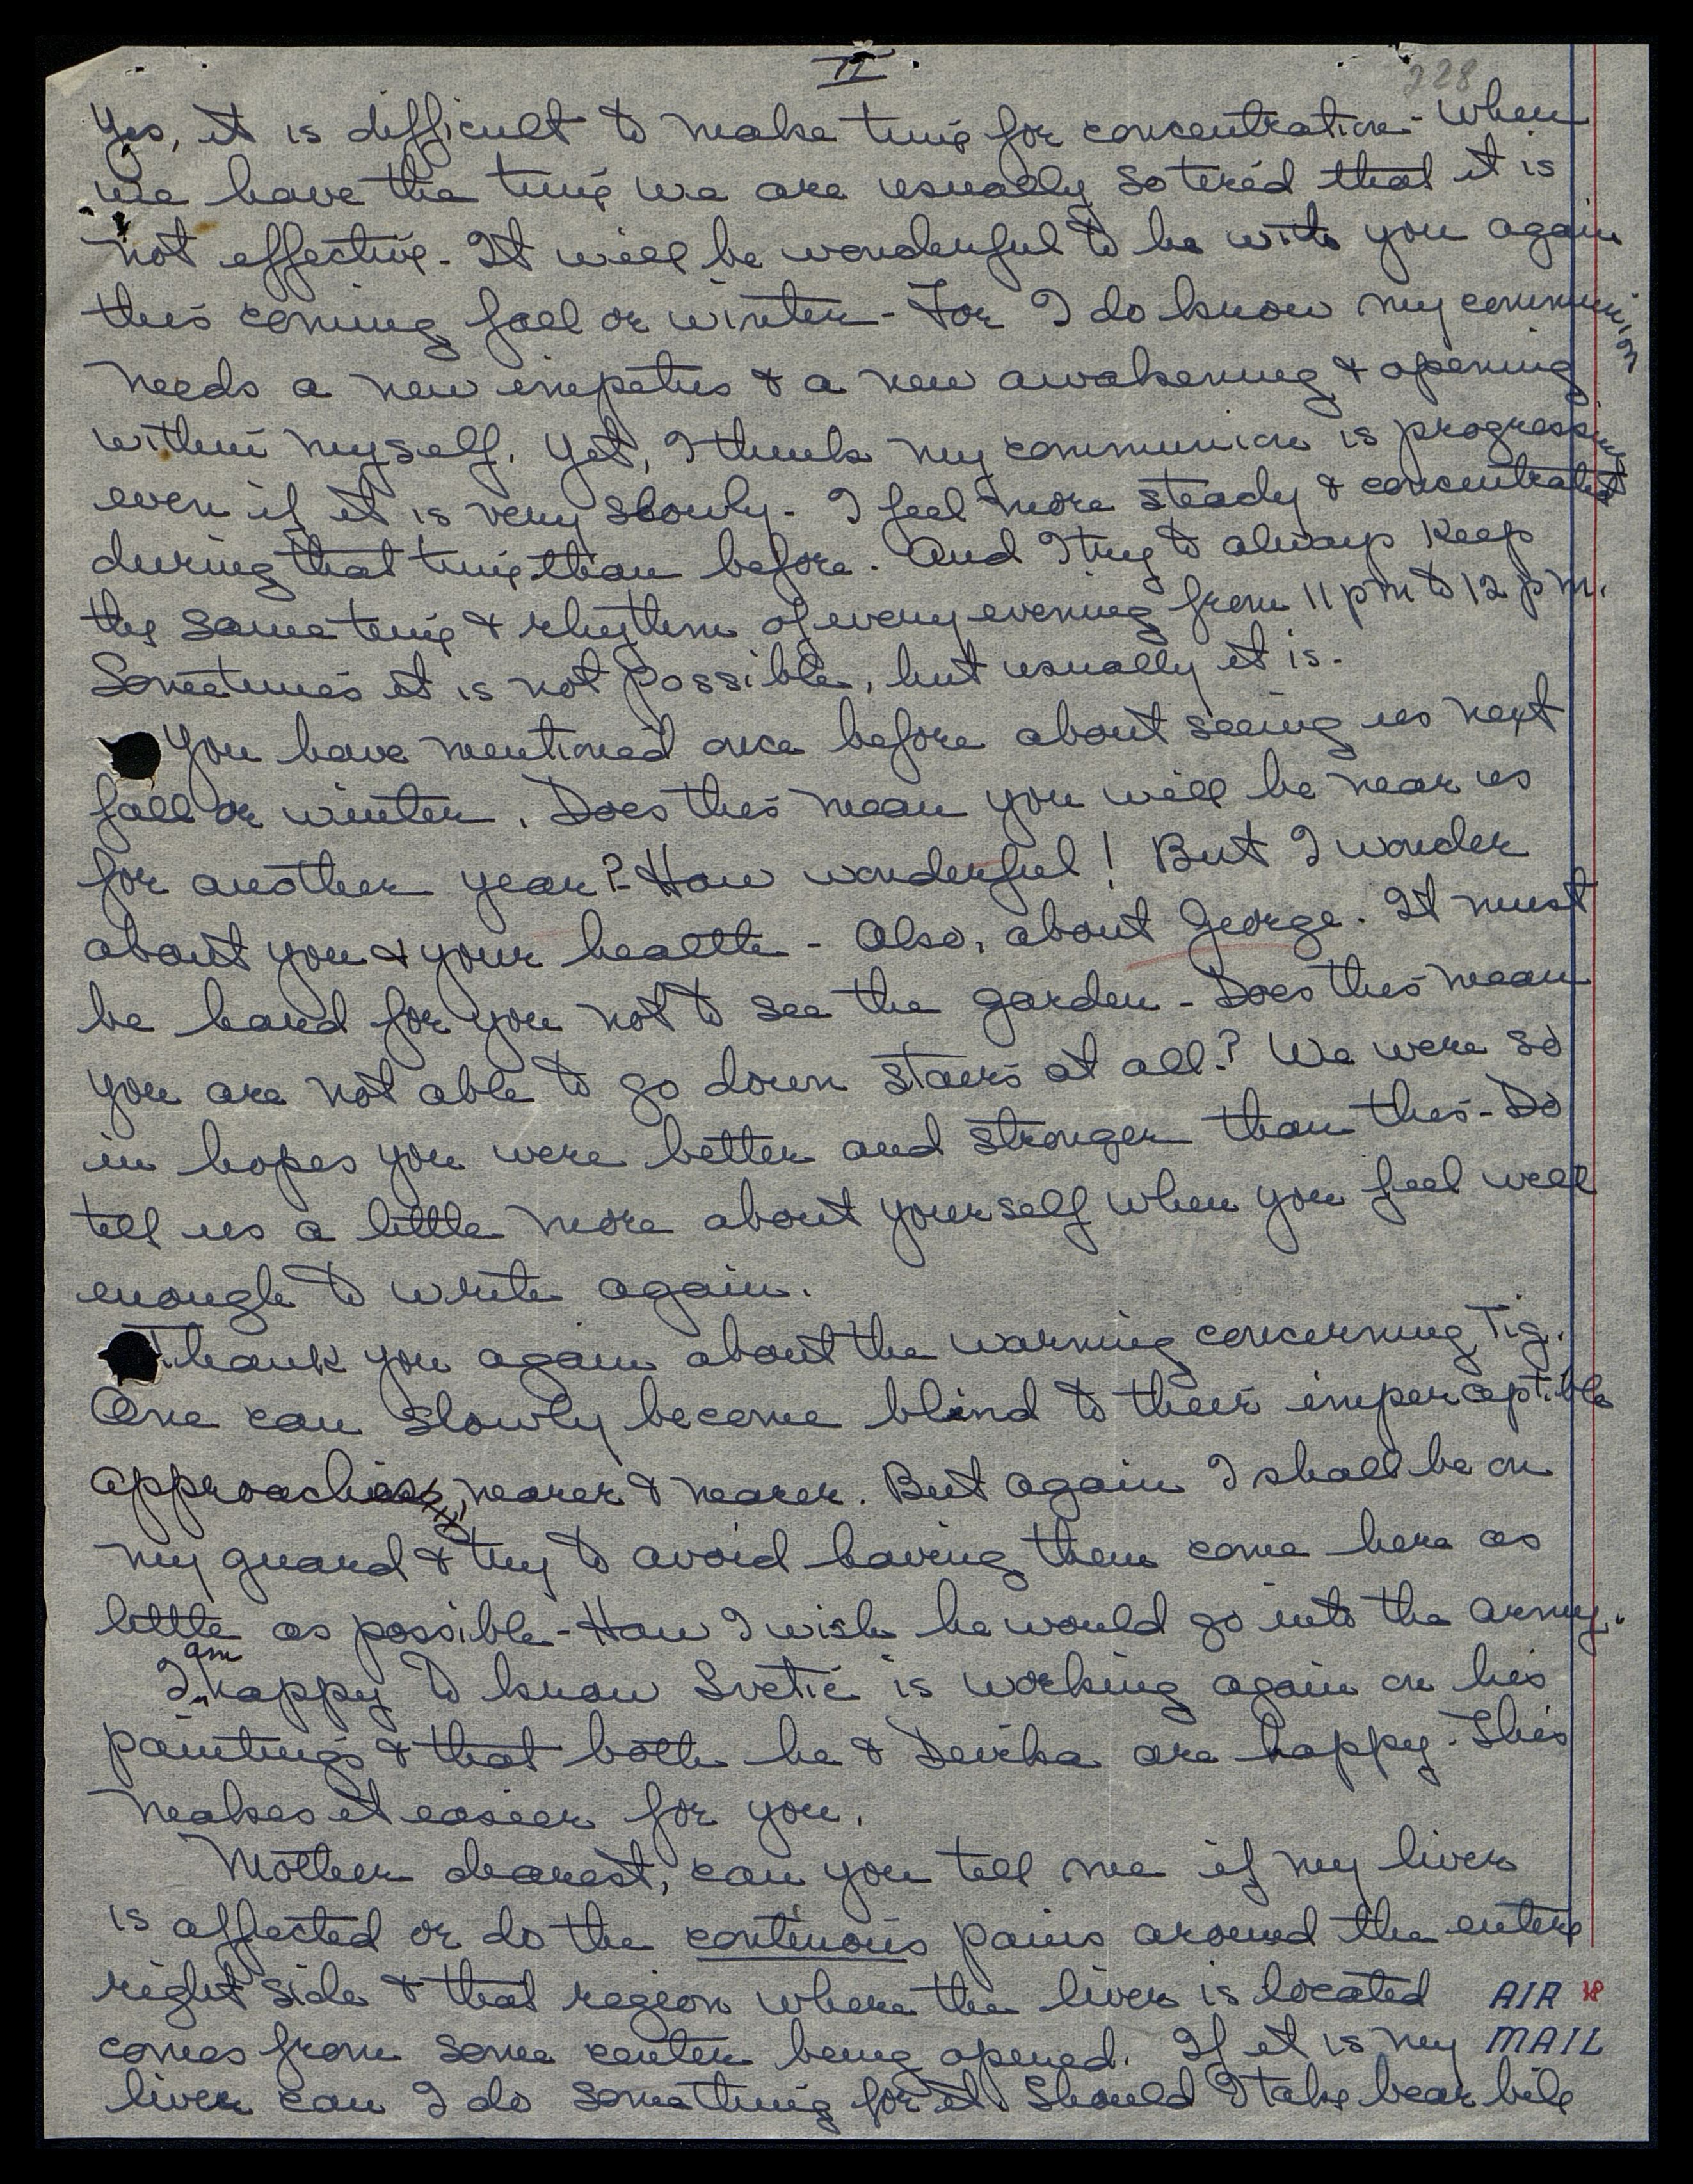 II
228
Yes, it is difficult to make time for concentration - When
we have the time we are usually so tired that it is
not effective - It will be wonderful to be with you again
this coming fall or winter - For I do know my communion
needs a new impetus & a new awakening & opening
within myself. Yet, I think my communion is progressing
even if it is very slowly - I feel more steady & concentrated
during that time than before. And I try to always keep
the same time & rhythm of every evening from 11 pm to 12 pm.
Sometimes it is not possible, but usually it is -
You have mentioned once before about seeing us next
fall or winter. Does this mean you will be near us
for another year? - How wonderful! But I wonder
about you & your health - Also, about George. It must
be hard for you not to see the garden - Does this mean
you are not able to go down stairs at all? We were so
in hopes you were better and stronger than this - Do
tell us a little more about yourself when you feel well
enough to write again.
Thank you again about the warning concerning Tig.
One can slowly become blind to their imperceptible
approaches, nearer & nearer. But again I shall be on
my guard & try to avoid having them come here as
little as possible - How I wish he would go into the army.
I am happy to know Svetic is working again on his
paintings & that both he & Devika are happy. This
makes it easier for you.
Mother dearest, can you tell me if my liver
is affected or do the continous pains around the entire
right side & that region where the liver is located
comes from some center being opened. If it is my
liver can I do something for it. Should I take bear bile
AIR
MAIL